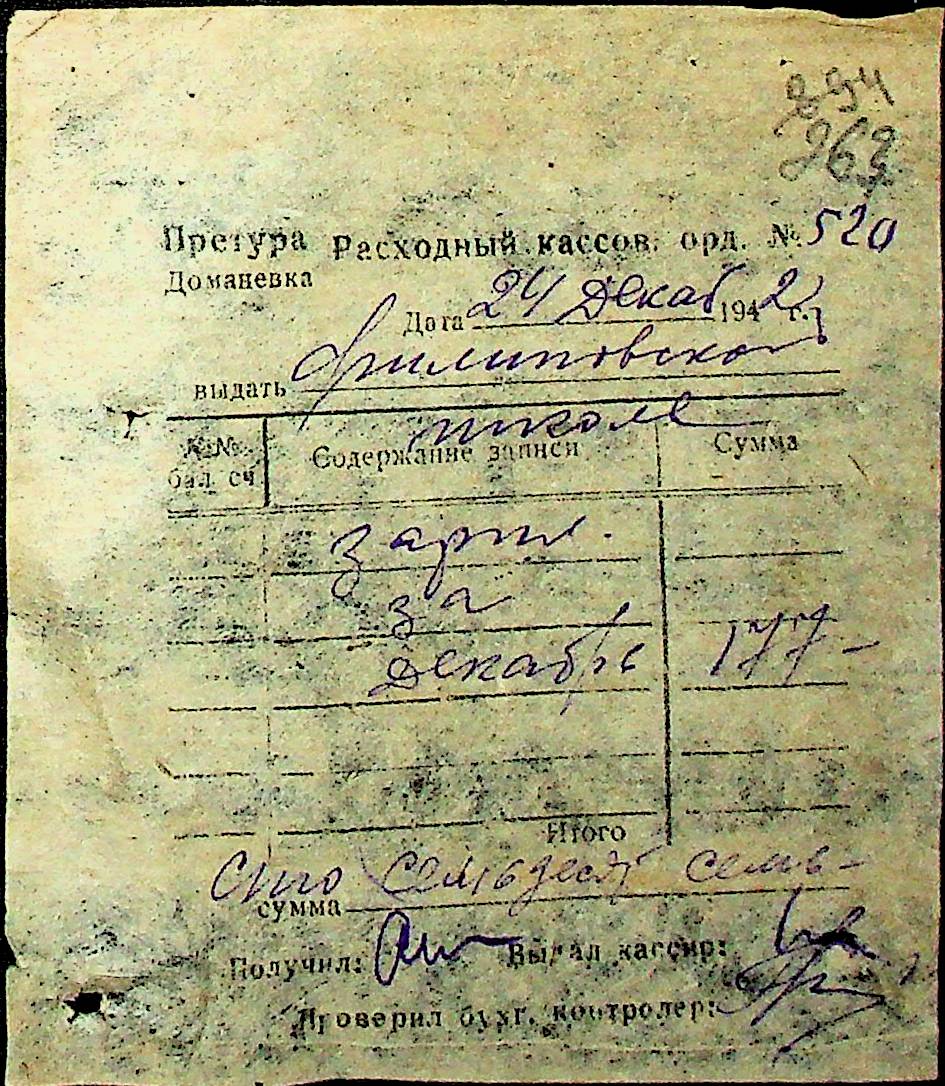 294
263
Претура Расходный кассов. орд. № 520
Доманевка
Дата 24 Декаб 1942 г.
выдать Филиповской
школе
№№ Содержание записи Сумма
бал сч
зарпл.
за
декабрь 177-
Итого
Сто семьдесят семь-
сумма
Получил: Выдал кассир:
Проверил бухг. контролер: